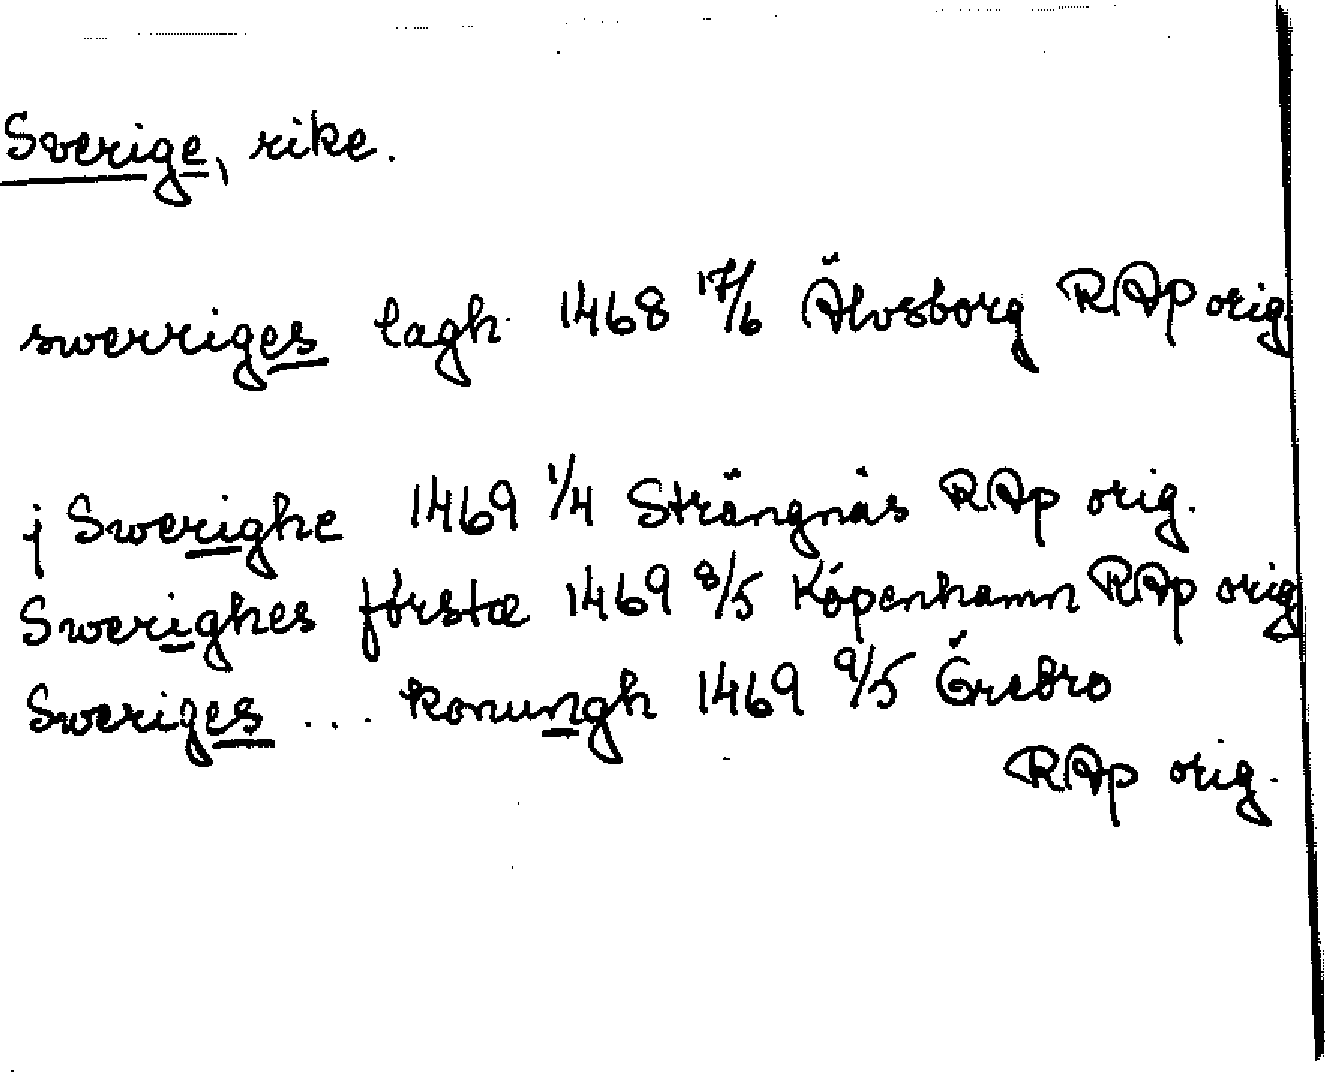 Sverige, rike.
swerriges lagh 1468 17/6 Älvsborg RAp orig.
j Swerighe 1469 1/4 Strängnäs RAp orig.
Swerighes förstæ 1469 8/5 Köpenhamn RAp orig
Sweriges ... konungh 1469 9/5 Örebro
RAp orig.